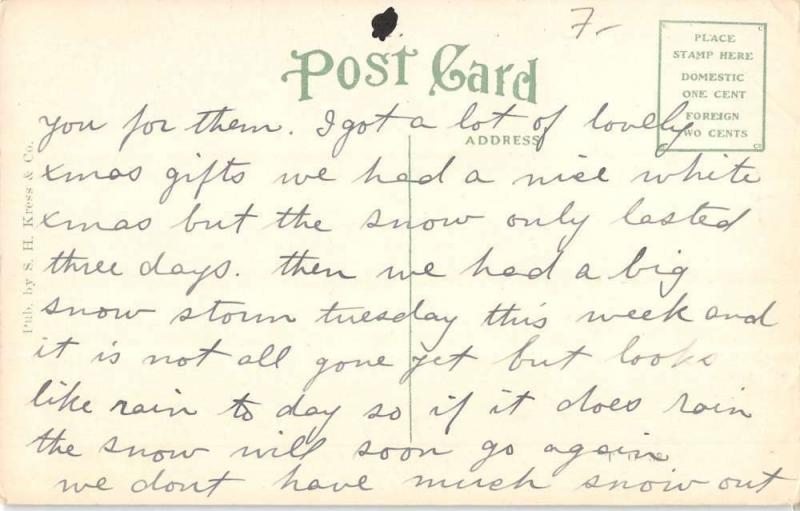 7-
Post Card
PLACE
STAMP HERE
DOMESTIC
ONE CENT
FOREIGN
TWO CENTS
ADDRESS
Pub. by S. H. Kress & Co.
you for them. I got a lot of lovely
xmas gifts we had a nice white
xmas but the snow only lasted
three days. then we had a big
snow storm tuesday this week and
it is not all gone yet but looks
like rain to day so if it does rain
the snow will soon go again
we dont have much snow out